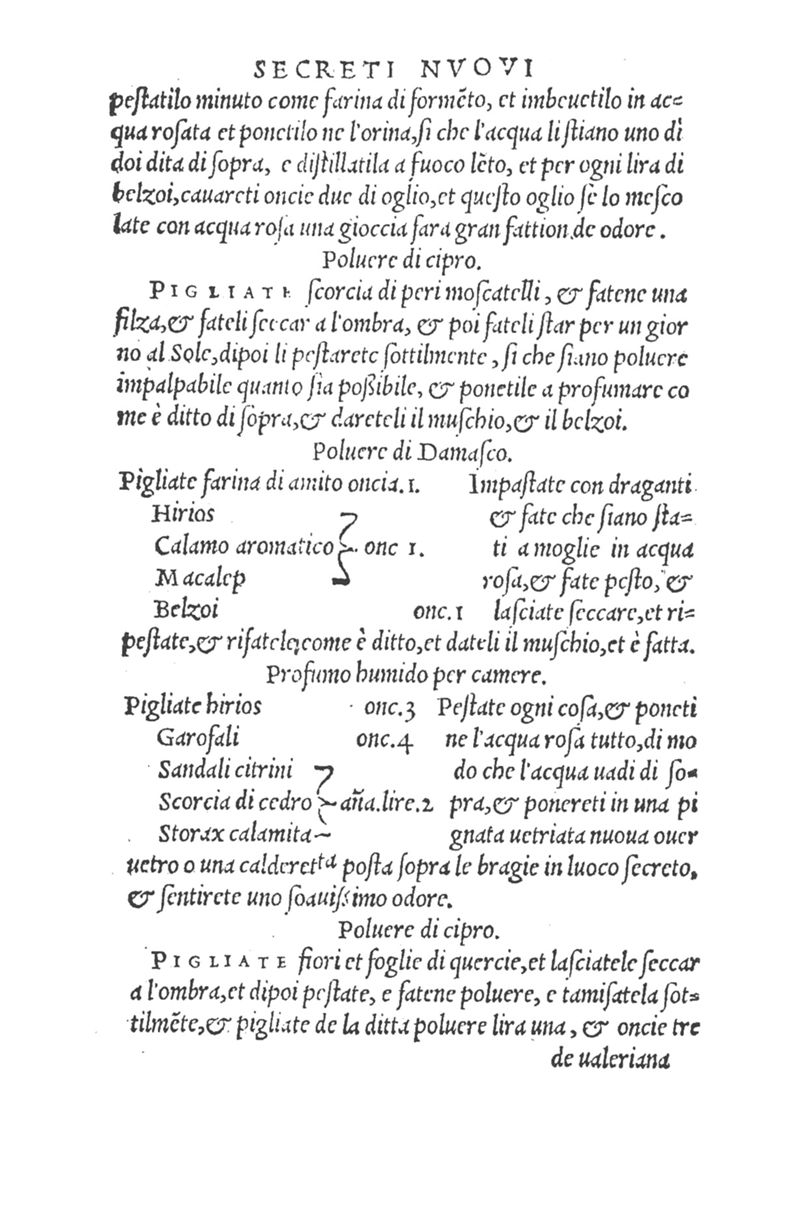 SECRETI NVOVI
peſtatilo minuto come farina di formēto, et imbeuetilo in ac=
qua roſata et ponetilo ne l'orina,ſi che l'acqua li ſtiano uno dì
doi dita di ſopra, e diſtillatila a fuoco lēto, et per ogni lira di
belzoi,cauareti oncie due di oglio,et queſto oglio ſe lo meſco
late con acqua roſa una gioccia fara gran fattion de odore.
Poluere di cipro.
PIGLIATE ſcorcia di peri moſcatelli, & fatene una
filza,& fateli ſeccar a l'ombra, & poi fateli ſtar per un gior
no al Sole,dipoi li peſtarete ſottilmente, ſi che ſiano poluere
impalpabile quanto ſia poßibile, & ponetile a profumare co
me è ditto di ſopra,& dareteli il muſchio,& il belzoi.
Poluere di Damaſco.
Pigliate farina di amito oncia.1. Impaſtate con draganti
Hirios & fate che ſiano ſta=
Calamo aromatico onc 1. ti a moglie in acqua
Macalep roſa,& fate peſto, &
Belzoi onc.1 laſciate ſeccare,et ri=
peſtate,& rifatele,come è ditto,et dateli il muſchio,et è fatta.
Profumo humido per camere.
Pigliate hirios onc.3 Peſtate ogni coſa,& poneti
Garofali onc.4 ne l'acqua roſa tutto,di mo
Sandali citrini do che l'acqua uadi di ſo=
Scorcia di cedro aña.lire.2 pra,& ponereti in una pi
Storax calamita gnata uetriata nuoua ouer
uetro o una calderetta poſta ſopra le bragie in luoco ſecreto,
& ſentirete uno ſoauiſſimo odore.
Poluere di cipro.
PIGLIATE fiori et foglie di quercie,et laſciatele ſeccar
a l'ombra,et dipoi peſtate, e fatene poluere, e tamiſatela ſot=
tilmēte,& pigliate de la ditta poluere lira una, & oncie tre
de ualeriana